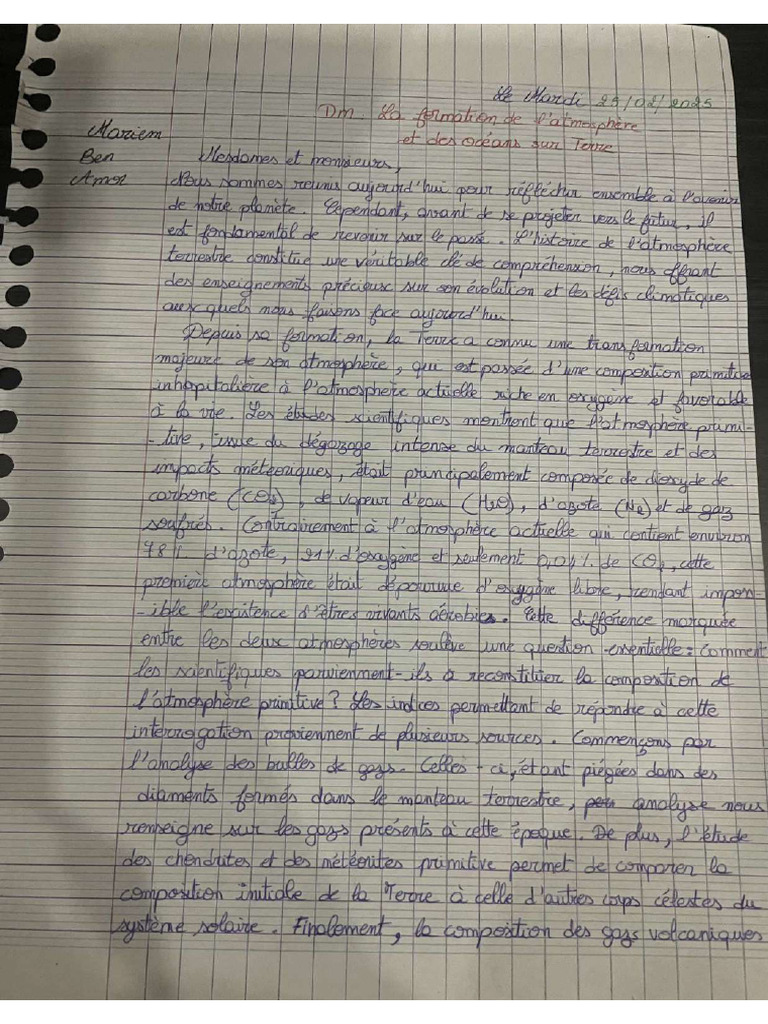 Le Mardi 25/02/2025
Dm. La formation de l'atmosphère
et des océans sur Terre
Mariem
Ben
Amor
Mesdames et monsieurs,
Nous sommes réunis aujourd'hui pour réfléchir ensemble à l'avenir
de notre planète. Cependant, avant de se projeter vers le futur, il
est fondamental de revenir sur le passé. L'histoire de l'atmosphère
terrestre constitue une véritable clé de compréhension, nous offrant
des enseignements précieux sur son évolution et les défis climatiques
aux quels nous faisons face aujourd'hui.
Depuis sa formation, la Terre a connu une transformation
majeure de son atmosphère, que est passée d'une composition primitive
inhospitalière à l'atmosphère actuelle riche en oxygène et favorable
à la vie. Les études scientifiques montrent que l'atmosphère primi-
-tive, issue du dégazage intense du manteau terrestre et des
impacts météoriques, était principalement composée de dioxyde de
carbone (CO2), de vapeur d'eau (H2O), d'azote (N2) et de gaz
soufrés. Contrairement à l'atmosphère actuelle qui contient environ
78% d'azote, 21% d'oxygène et seulement 0,04% de CO2, cette
première atmosphère était dépourvue d'oxygène libre, rendant impon-
-ible l'existence d'êtres vivants aérobies. Cette différence marquée
entre les deux atmosphères soulève une question essentielle: comment
les scientifiques parviennent-ils à reconstituer la composition de
l'atmosphère primitive? Les indices permettant de répondre à cette
interrogation proviennent de plusieurs sources. Commençons par
l'analyse des bulles de gaz. Celles-ci, étant piégées dans des
diamants formés dans le manteau terrestre, analyse nous
renseigne sur les gazs présents à cette époque. De plus, l'étude
des chondrites et des météorites primitive permet de comparer la
composition initiale de la Terre à celle d'autres corps célestes du
système solaire. Finalement, la composition des gazs volcaniques